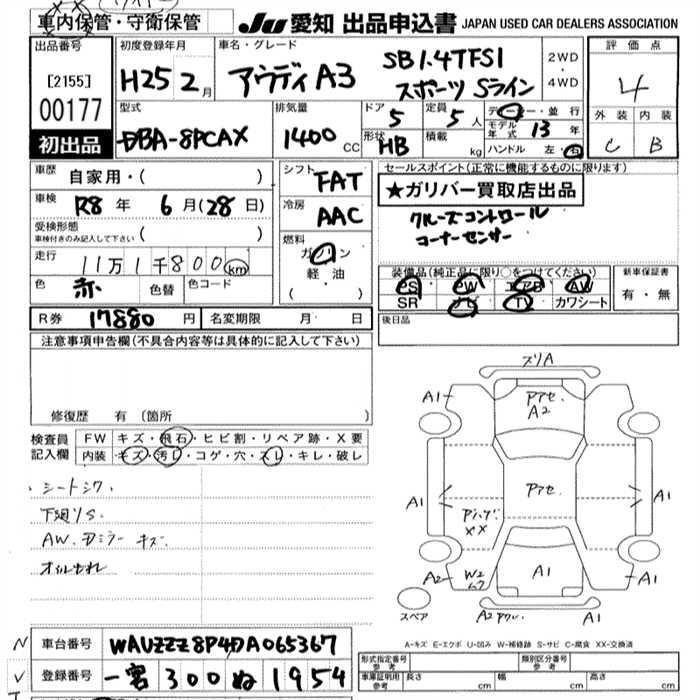 車内保管・守衛保管
JU 愛知 出品申込書 JAPAN USED CAR DEALERS ASSOCIATION
出品番号 初度登録年月 車名・グレード 評価点
[2155] H25 2月 アウディ A3 SB1.4TFSI スポーツ Sライン 2WD・4WD 4
00177 型式 排気量 ドア 定員 外装 内装
初出品 DBA-8PCAX 1400 CC 5 5人 ディーラー・並行 C B
形状 HB 積載 kg モデル年式 13年
ハンドル 左・右
車歴 自家用・( ) シフト FAT セールスポイント(正常に機能するものに限ります)
車検 R8年 6月(28日) 冷房 AAC ★ガリバー買取店出品
受検形態 車検付きのみ記入して下さい ( ) クルーズコントロール
燃料 ガソリン コーナーセンサー
走行 11万1千800km 軽油 ( ・ )
装備品(純正品に限り○をつけてください) 新車保証書
色 赤 色替 色コード PS PW エアB AW 有・無
SR ナビ TV カワシート
R券 17880円 名変期限 月 日 後日品
注意事項申告欄(不具合内容等は具体的に記入して下さい)
修復歴 有 (箇所
検査員記入欄 FW キズ・飛石・ヒビ割・リペア跡・X要
内装 キズ・汚レ・コゲ・穴・スレ・キレ・破レ
・シートシワ
下廻りS.
AW.ドミラー キズ
オイルもれ
スリA
A1 Pアセ. A2 A1
A1 Pアセ. A1
Pハゲ XX
A2 W2 A1 A1
スペア A2
A-キズ E-エクボ U-凹み W-補修跡 S-サビ C-腐食 XX-交換済
車台番号 WAUZZZ8P4DA065367
登録番号 一宮 300 ぬ 1954
形式指定番号 参考 類別区分番号 参考
車庫証明用 参考 長さ cm 幅 cm 高さ cm